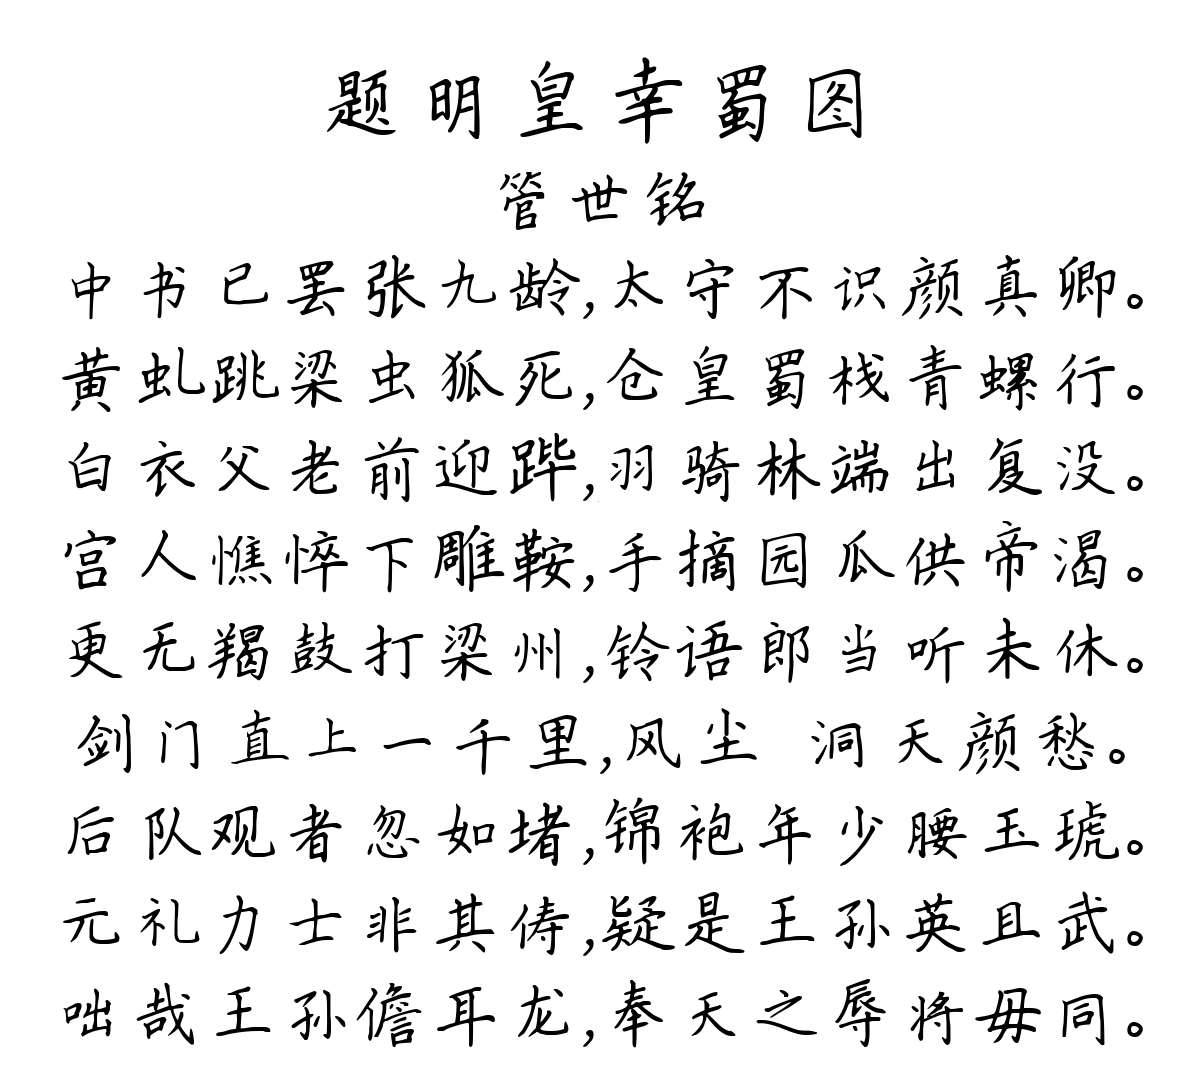 题明皇幸蜀图
管世铭
中书已罢张九龄,太守不识颜真卿。
黄虬跳梁虫狐死,仓皇蜀栈青螺行。
白衣父老前迎跸,羽骑林端出复没。
宫人憔悴下雕鞍,手摘园瓜供帝渴。
更无羯鼓打梁州,铃语郎当听未休。
剑门直上一千里,风尘 洞天颜愁。
后队观者忽如堵,锦袍年少腰玉琥。
元礼力士非其俦,疑是王孙英且武。
咄哉王孙儋耳龙,奉天之辱将毋同。